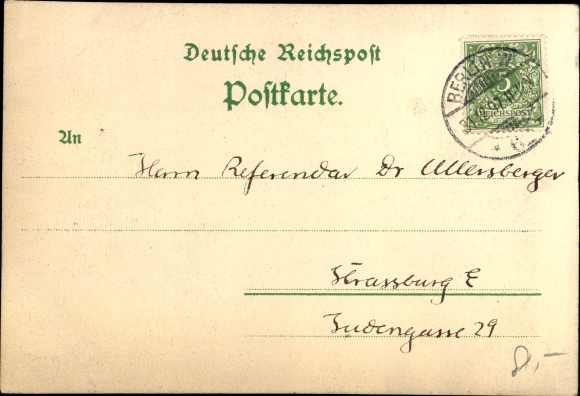 Deutsche Reichspost
Postkarte.
BERLIN W.
5
REICHSPOST
An
Herrn Referendar Dr Ullersberger
Strassburg E
Judengasse 29